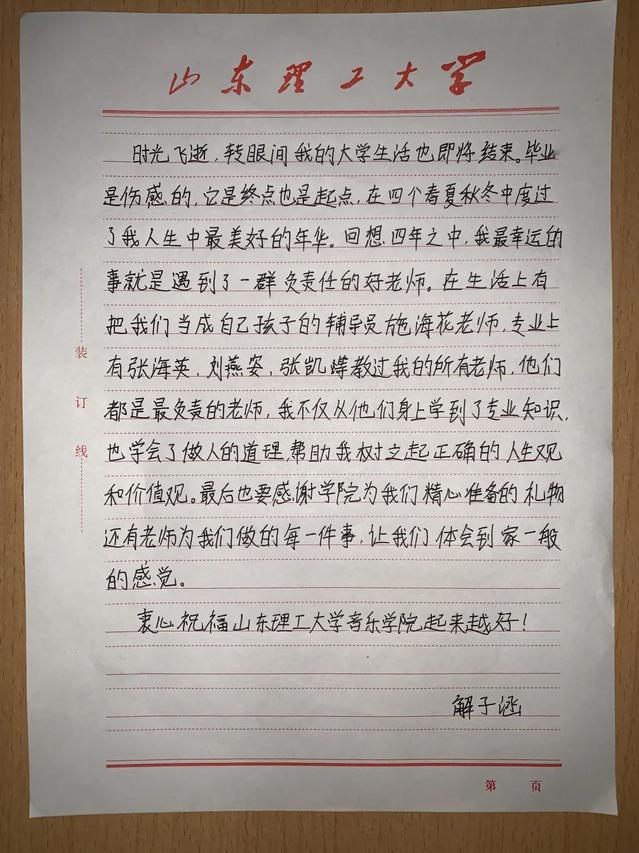 山东理工大学
时光飞逝，转眼间我的大学生活也即将结束。毕业
是伤感的，它是终点也是起点，在四个春夏秋冬中度过
了我人生中最美好的年华。回想四年之中，我最幸运的
事就是遇到了一群负责任的好老师。在生活上有
把我们当成自己孩子的辅导员施海花老师，专业上
有张海英，刘燕姿，张凯烨教过我的所有老师，他们
都是最负责的老师，我不仅从他们身上学到了专业知识，
也学会了做人的道理，帮助我树立起正确的人生观
和价值观。最后也要感谢学院为我们精心准备的礼物
还有老师为我们做的每一件事，让我们体会到家一般
的感觉。
衷心祝福山东理工大学音乐学院起来越好！
解子涵
装
订
线
第 页